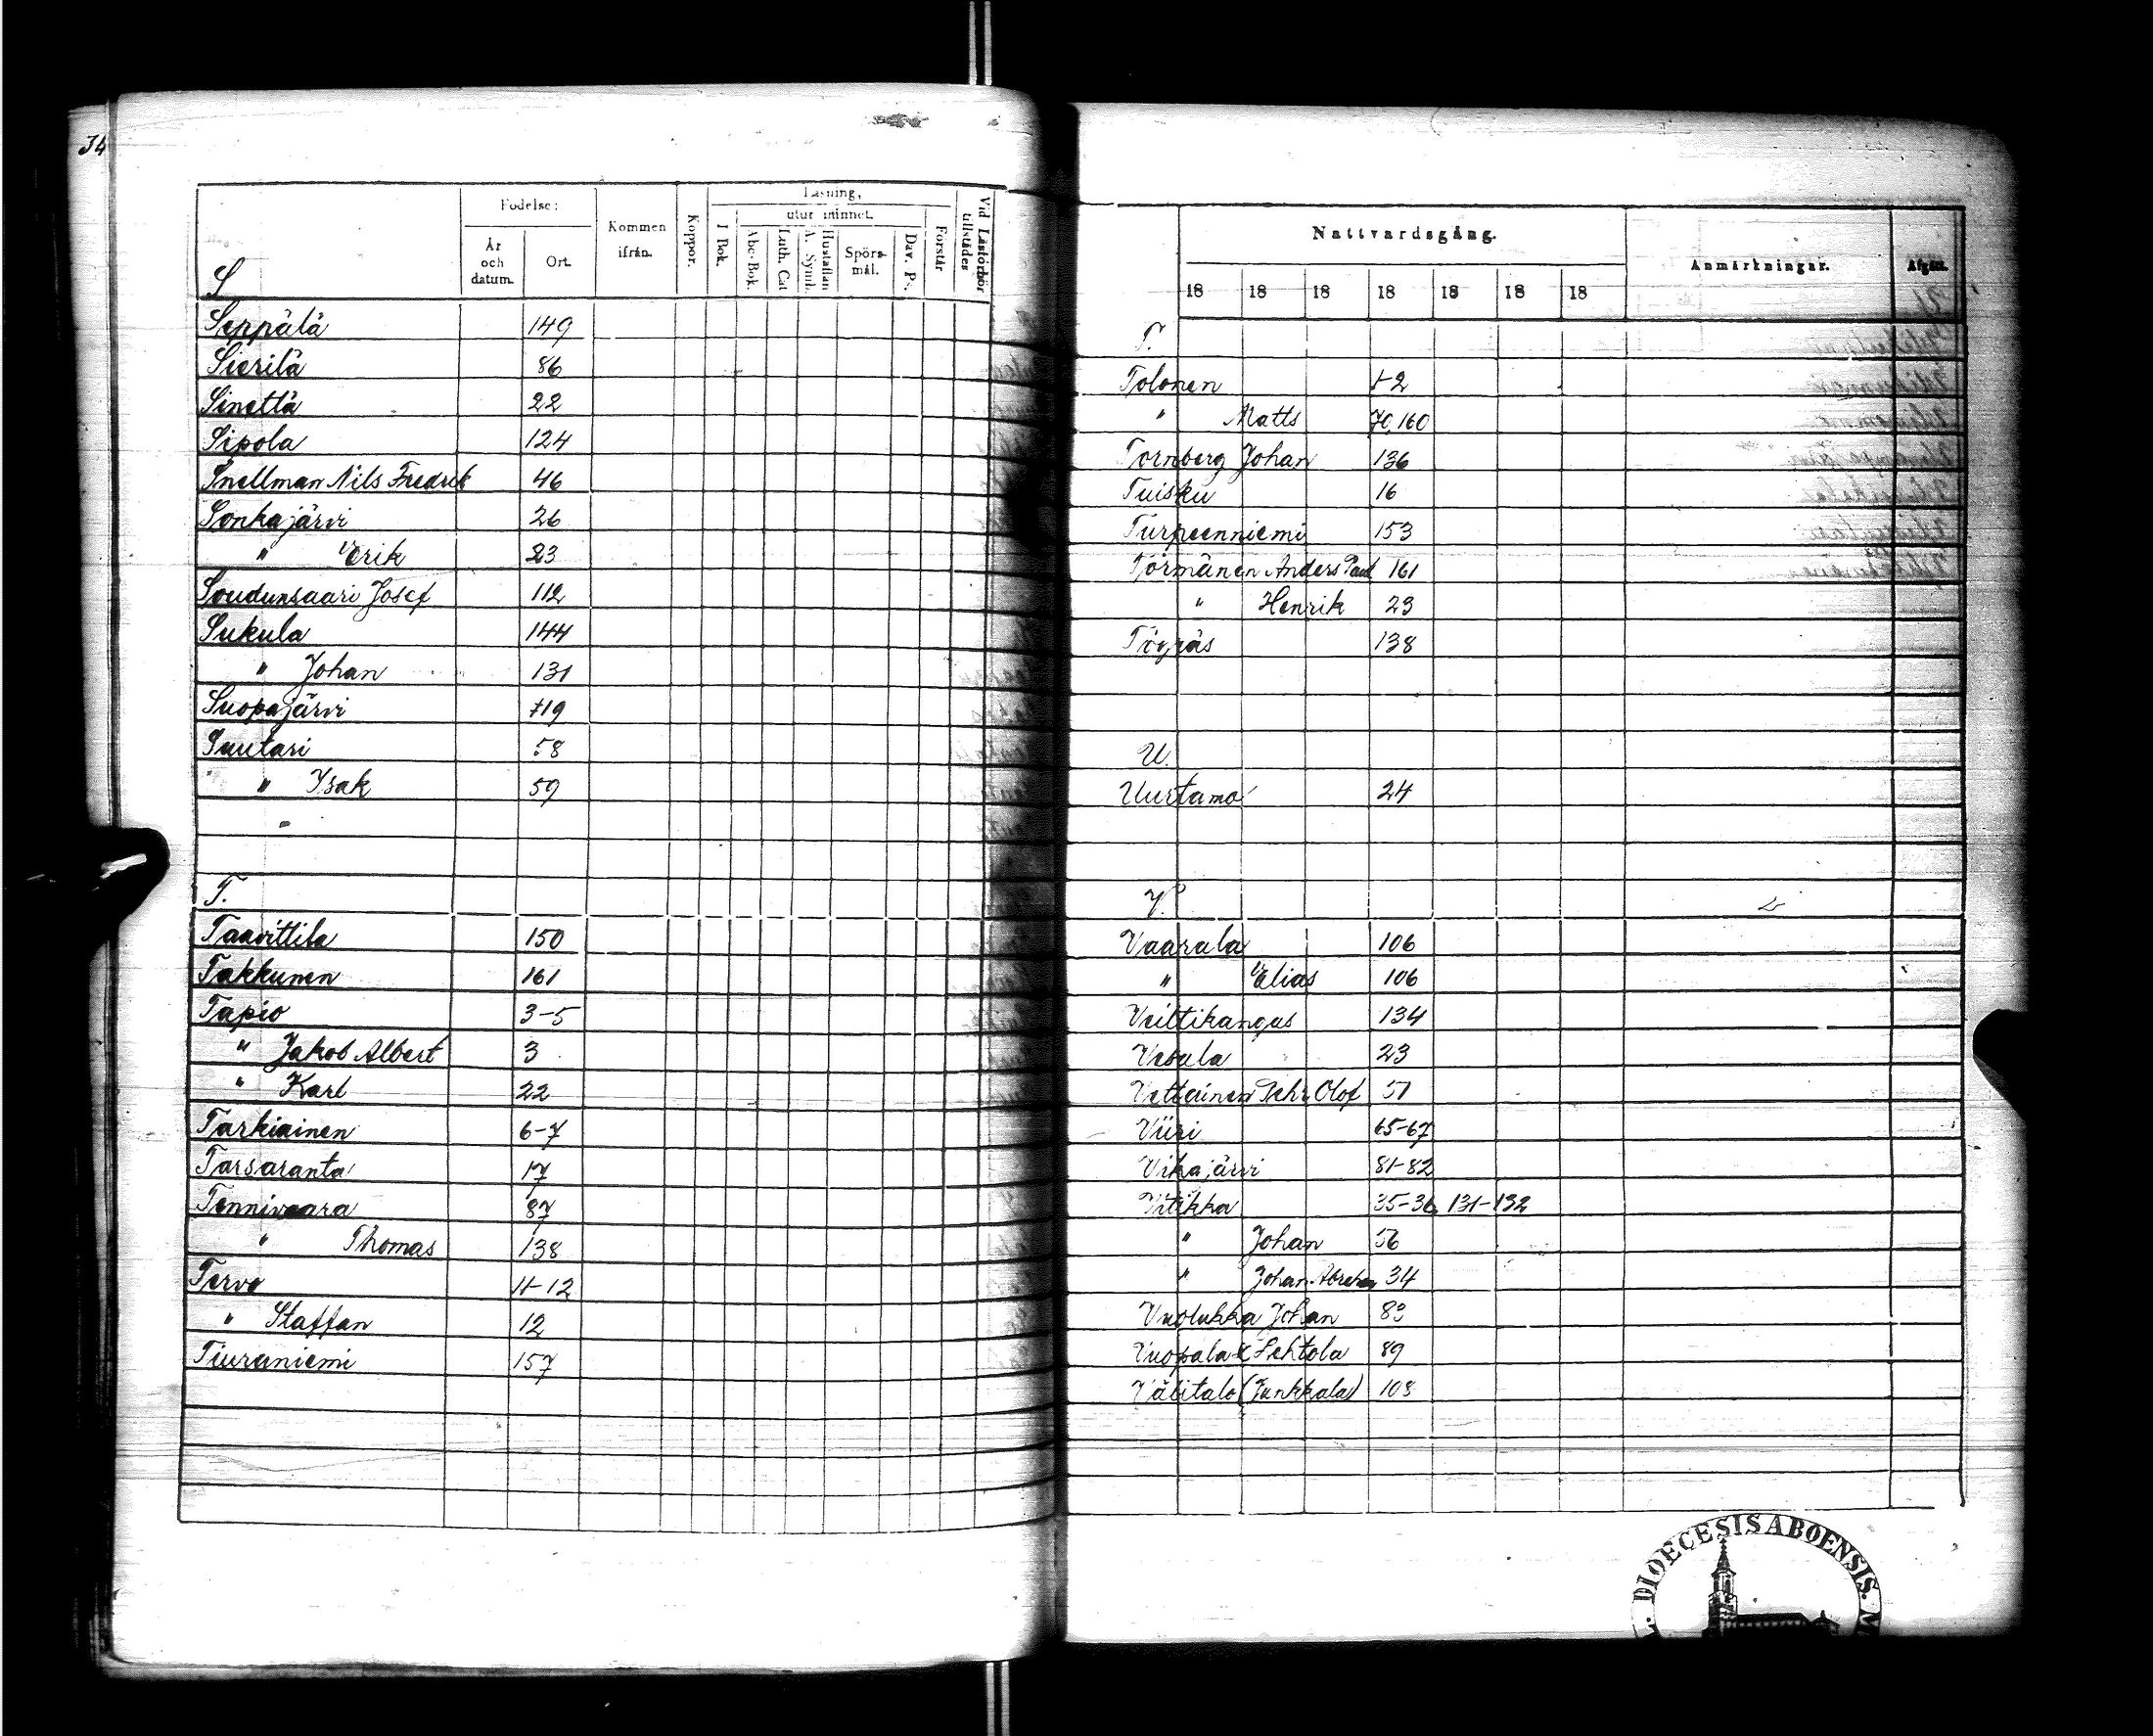 34
Födelse:
År och datum.
Ort.
Kommen ifrån.
Koppor.
Läsning,
utur minnet.
I Bok.
Abc-Bok.
Luth. Cat
A. Symb.
Hustaflan
Spörs-mål.
Dav. Ps.
Förstår
Vid Läsförhör tillstädes
S
Seppälä 149
Sierilä 86
Sinettä 22
Sipola 124
Snellman Nils Fredrik 46
Sonkajärvi 26
" Erik 23
Soudunsaari Josef 112
Sukula 144
" Johan 131
Suopajärvi 119
Suutari 58
" Isak 59
T.
Taavittila 150
Takkunen 161
Tapio 3-5
" Jakob Albert 3
" Karl 22
Tarkiainen 6-7
Tarsaranta 17
Tennivaara 87
" Thomas 138
Tervo 11-12
" Staffan 12
Tiuraniemi 157
Nattvardsgång.
Anmärkningar.
Afgått.
18 18 18 18 18 18 18
T.
Tolonen 1-2
" Matts 70, 160
Tornberg Johan 136
Tuisku 16
Turpeenniemi 153
Törmänen Anders Paul 161
" Henrik 23
Töyräs 138
U.
Uurtamo 24
V.
Vaarala 106
" Elias 106
Veittikangas 134
Vesala 23
Vettainen Pehr Olof 51
Viiri 65-67
Vikajärvi 81-82
Vitikka 35-36, 131-132
" Johan 56
" Johan Abraham 34
Vuolukka Johan
Vuopala (Lehtola 89
Välitalo (Junkkala) 108
DIOECESIS ABOENSIS.